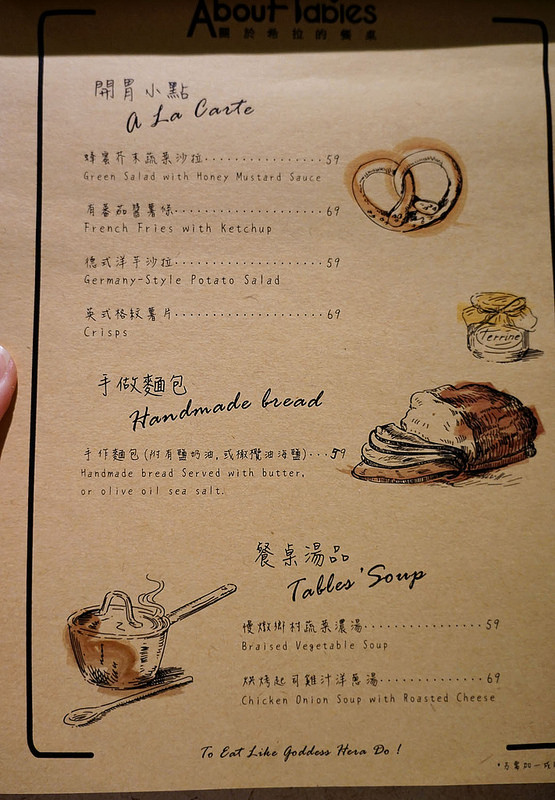 About Tables
關於希拉的餐桌
開胃小點
A La Carte
蜂蜜芥末蔬菜沙拉···················59
Green Salad with Honey Mustard Sauce
有番茄醬薯條·······················69
French Fries with Ketchup
德式洋芋沙拉·······················59
Germany-Style Potato Salad
英式格紋薯片·······················69
Crisps
Terrine
手做麵包
Handmade bread
手作麵包(附有鹽奶油,或橄欖油海鹽)···59
Handmade bread Served with butter,
or olive oil sea salt.
餐桌湯品
Tables' Soup
慢燉鄉村蔬菜濃湯···················59
Braised Vegetable Soup
烘烤起司雞汁洋蔥湯·················69
Chicken Onion Soup with Roasted Cheese
To Eat Like Goddess Hera Do !